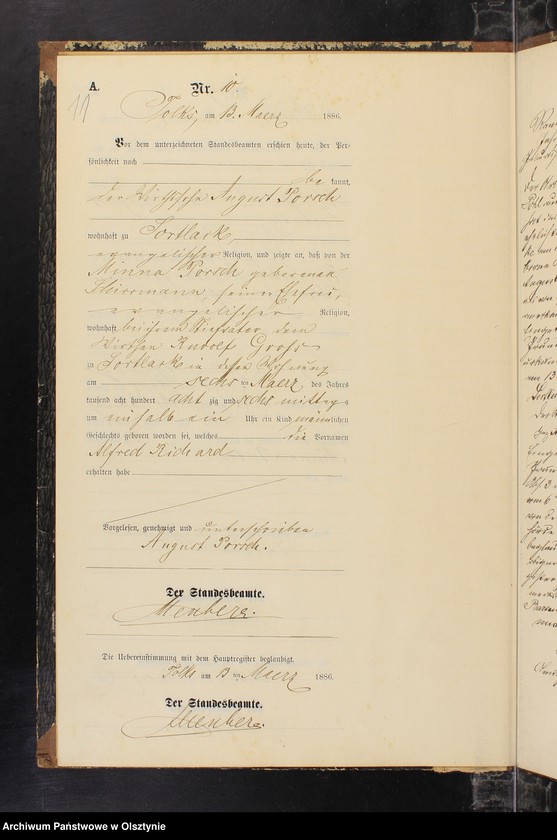 A.
Nr. 10.
11
Tolks, am 13. Maerz 1886.
Vor dem unterzeichneten Standesbeamten erschien heute, der Per-
sönlichkeit nach
be kannt,
der Wirthssohn August Porsch
wohnhaft zu Sortlack,
evangelischer Religion, und zeigte an, daß von der
Minna Porsch geborenen
seiner Ehefrau,
evangelischer Religion,
wohnhaft bei ihrem Stiefvater, dem
Wirthen Rudolf Gross
zu Sortlack in dessen Wohnung
am sechs ten Maerz des Jahrs
tausend acht hundert acht zig und sechs mittags
um ein Uhr ein Kind männlichen
Geschlechts geboren worden sei, welches die Vornamen
Alfred Richard
erhalten habe
Vorgelesen, genehmigt und unterschrieben
August Porsch.
Der Standesbeamte.
Die Uebereinstimmung mit dem Hauptregister beglaubigt.
Tolks am 13 ten Maerz 1886.
Der Standesbeamte.
Archiwum Państwowe w Olsztynie